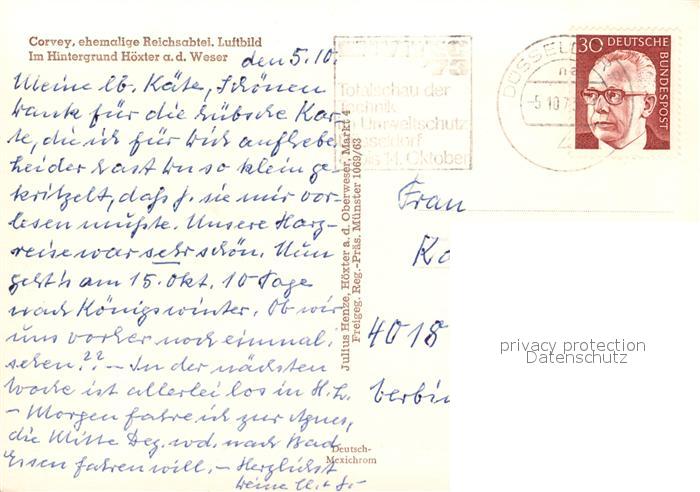 Corvey, ehemalige Reichsabtei. Luftbild
Im Hintergrund Höxter a. d. Weser
den 5.10.
Meine lb. Käte, Schönen
Dank für die hübsche Kar-
te, die ich für Dich aufhebe.
Leider hast Du so klein ge-
kritzelt, daß J. sie mir vor-
lesen mußte. Unsere Harz-
reise war sehr schön. Nun
geht's am 15. Okt. 10 Tage
nach Königswinter. Ob wir
uns vorher noch einmal
sehen?? – In der nächsten
Woche ist allerlei los in H. L.
– Morgen fahre ich zur Agnes,
die Mitte Dez. wd. nach Bad
Essen fahren will. – Herzlichst
Deine
Julius Henze, Höxter a. d. Oberweser, Markt 4
Freigeg. Reg.-Präs. Münster 1069/63
Deutsch-
Mexichrom
73
Totalschau der
Technik
im Umweltschutz
Düsseldorf
bis 14. Oktober
DÜSSELDO
-5.10.7
30 DEUTSCHE
BUNDESPOST
Frau
4018
privacy protection
Datenschutz